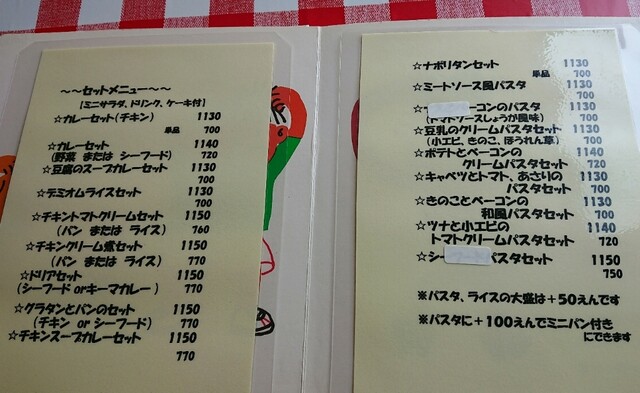 ～～セットメニュー～～
【ミニサラダ、ドリンク、ケーキ付】
☆カレーセット(チキン) 1130
単品 700
☆カレーセット 1140
(野菜 または シーフード) 720
☆豆腐のスープカレーセット 1130
700
☆デミオムライスセット 1130
700
☆チキントマトクリームセット 1150
(パン または ライス) 760
☆チキンクリーム煮セット 1150
(パン または ライス) 770
☆ドリアセット 1150
(シーフード orキーマカレー) 770
☆グラタンとパンのセット 1150
(チキン or シーフード) 770
☆チキンスープカレーセット 1150
770
☆ナポリタンセット 1130
単品 700
☆ミートソース風パスタ 1130
700
☆ ーコンのパスタ 1130
(トマトソースしょうが風味) 700
☆豆乳のクリームパスタセット 1130
(小エビ、きのこ、ほうれん草) 700
☆ポテトとベーコンの 1140
クリームパスタセット 720
☆キャベツとトマト、あさりの 1130
パスタセット 700
☆きのことベーコンの 1130
和風パスタセット 700
☆ツナと小エビの 1140
トマトクリームパスタセット 720
☆シー パスタセット 1150
750
※パスタ、ライスの大盛は+50えんです
※パスタに+100えんでミニパン付き
にできます